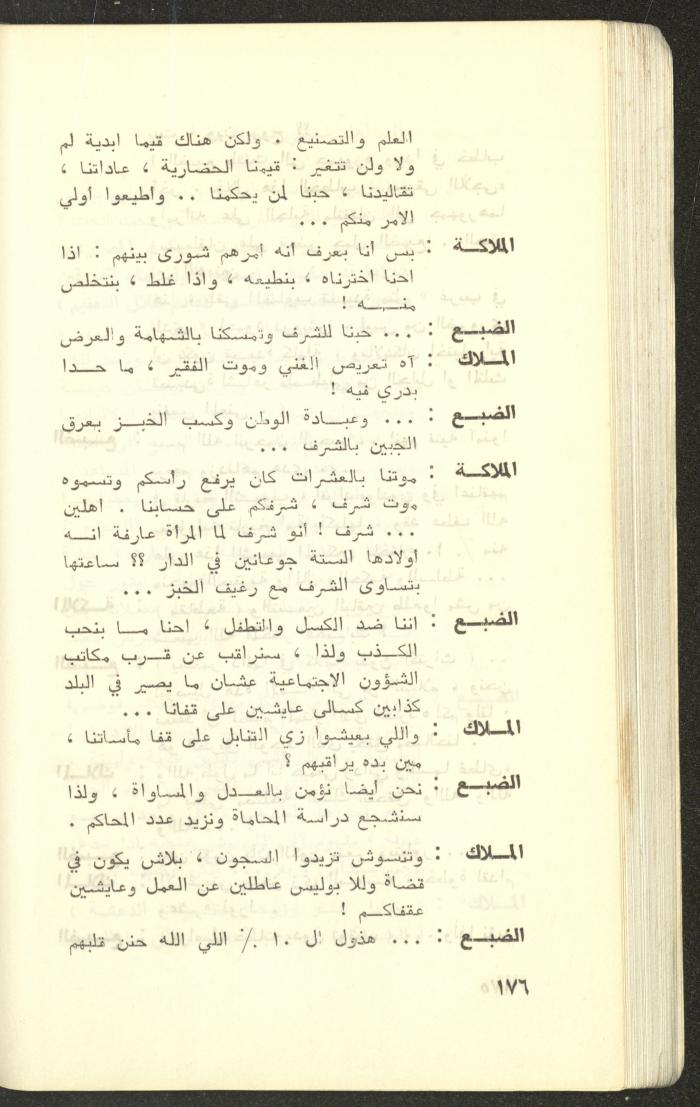 العلم والتصنيع . ولكن هناك قيما ابدية لم
ولا ولن تتغير : قيمنا الحضارية ، عاداتنا ،
تقاليدنا ، حبنا لمن يحكمنا .. وأطيعوا أولي
الامر منكم ...
الملاكــة : بس أنا بعرف أنه أمرهم شورى بينهم : اذا
احنا اخترناه ، بنطيعه ، واذا غلط ، بنتخلص
منــــه !
الضبــع : ... حبنا للشرف وتمسكنا بالشهامة والعرض
المــلاك : آه تعريص الغني وموت الفقير ، ما حــدا
بدري فيه !
الضبــع : ... وعبــادة الوطن وكسب الخبــز بعرق
الجبين بالشرف ...
الملاكــة : موتنا بالعشرات كان يرفع رأسكم وتسموه
موت شرف ، شرفكم على حسابنا . اهلين
... شرف ! أنو شرف لما المرأة عارفة انــه
اولادها الستة جوعانين في الدار ؟؟ ساعتها
بتساوى الشرف مع رغيف الخبز ...
الضبــع : اننا ضد الكسل والتطفل ، احنا مــا بنحب
الكــذب ولذا ، سنراقب عن قــرب مكاتب
الشؤون الاجتماعية عشان ما يصير في البلد
كذابين كسالى عايشين على قفانا ...
المــلاك : واللي بعيشوا زي التنابل على قفا مأساتنا ،
مين بده يراقبهم ؟
الضبــع : نحن أيضا نؤمن بالعــدل والمساواة ، ولذا
سنشجع دراسة المحاماة ونزيد عدد المحاكم .
المــلاك : وتنسوش تزيدوا السجون ، بلاش يكون في
قضاة وللا بوليس عاطلين عن العمل وعايشين
عقفاكــم !
الضبــع : ... هذول ال ١٠ ٪ اللي الله حنن قلبهم
١٧٦